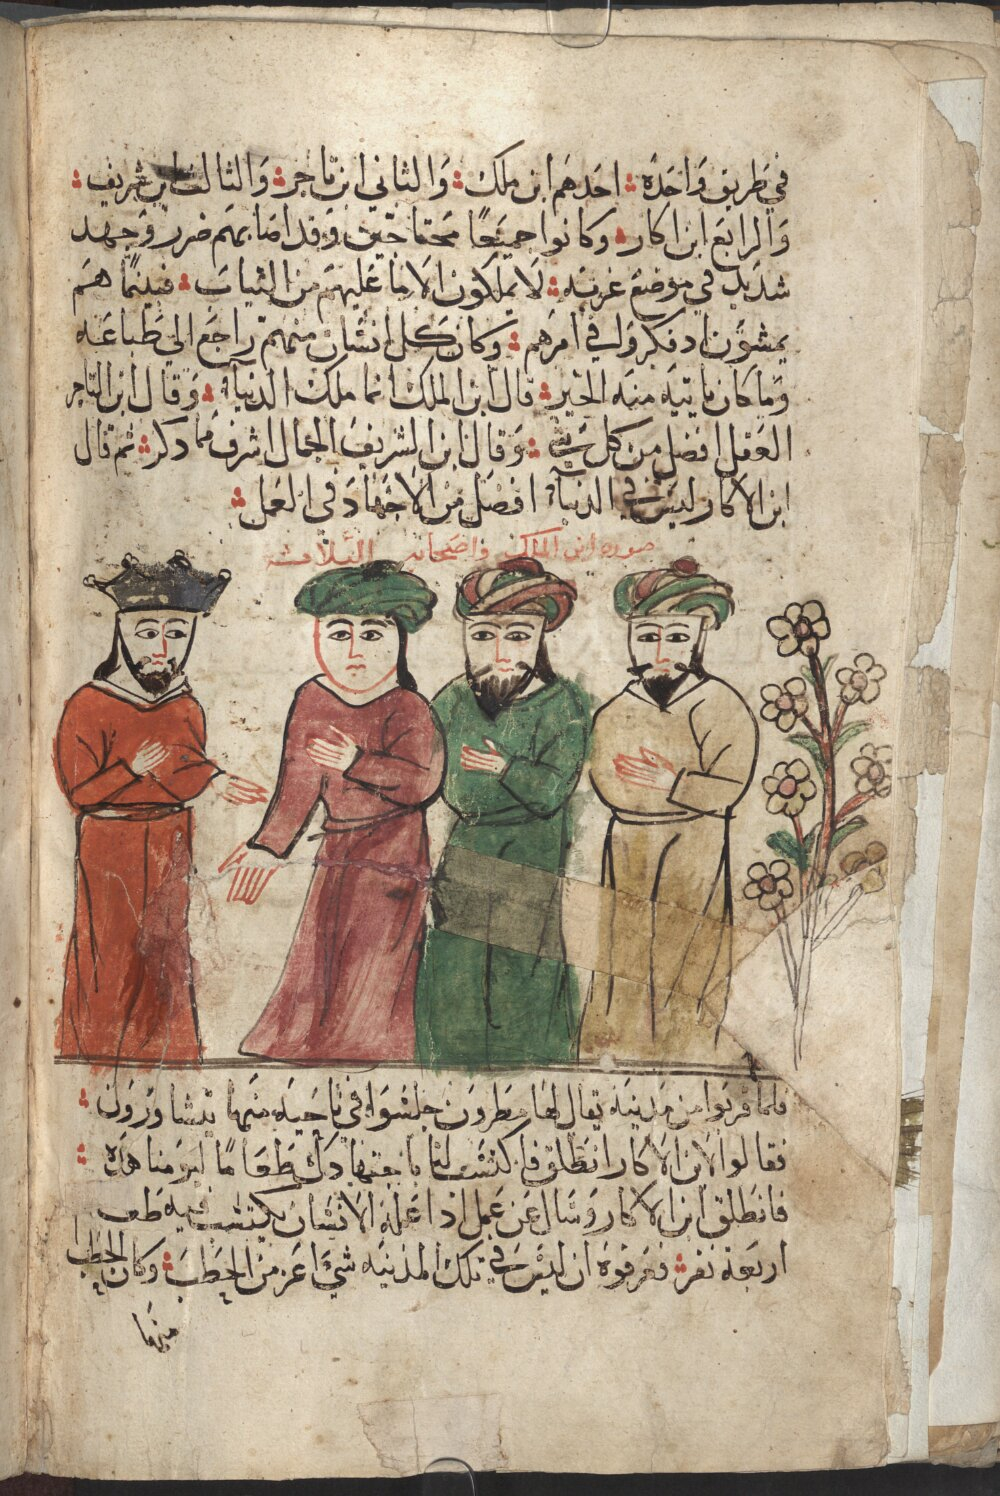 في طريق واحدة احدهم ابن ملك والثاني ابن تاجر والثالث ابن شريف
والرابع ابن اكار وكانوا جميعًا محتاجين وقد اصابهم ضرر وجهد
شديد في موضع غربه لا يملكون الا ما عليهم من الثياب فبينما هم
يمشون اد فكروا في امرهم وكان كل انسان منهم راجع الي طباعه
وما كان ياتيه منه الخير قال ابن الملك انما ملك الدنيا وقال ابن التاجر
العقل افضل من كل شي وقال ابن الشريف الجمال اشرف مما دكر ثم قال
ابن الاكار ليس في الدنيا افضل من الاجتهاد في العمل
صورة ابن الملك واصحابه الثلاثه
فلما قربوا من مدينه يقال لها مطرون جلسوا في ناحيه منها يتشاورون
فقالوا لابن الاكار انطلق فاكتسب لنا باجتهادك طعامًا ليومنا هذه
فانطلق ابن الاكار وسال عن عمل اذا عمله الانسان يكتسب فيه طعام
اربعة نفر فعرفوه ان ليس في تلك المدينه شي اعز من الحطب وكان الحطب
منها